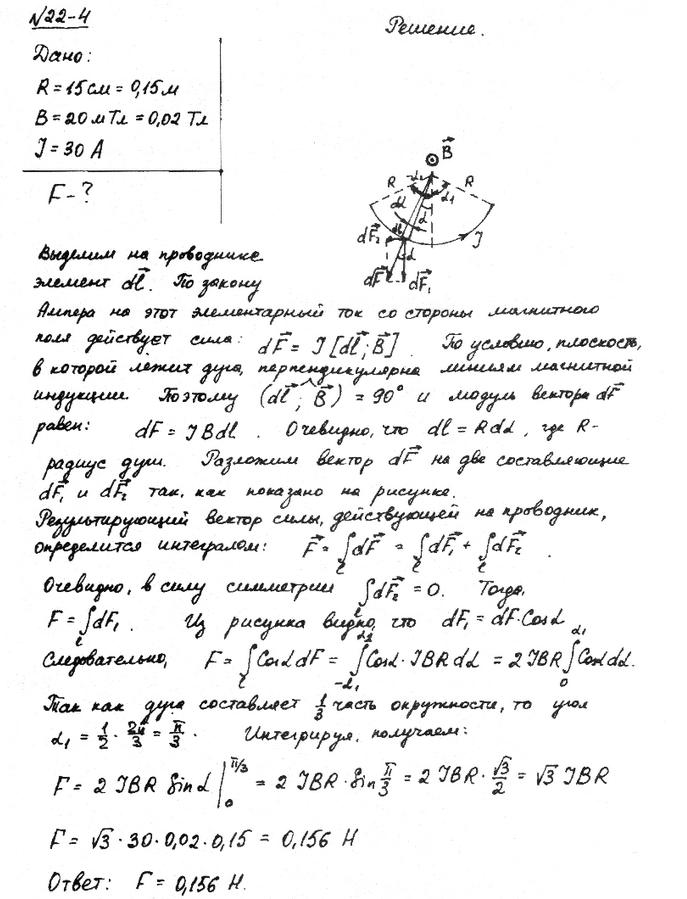 №22-4
Решение.
Дано:
R = 15 см = 0,15 м
B = 20 мТл = 0,02 Тл
J = 30 А
F - ?
B⃗
-α₁ α₁
R R
dα α
dl
dF⃗₂ J
α
dF⃗ dF⃗₁
Выделим на проводнике
элемент dl⃗. По закону
Ампера на этот элементарный ток со стороны магнитного
поля действует сила: dF⃗ = J [dl⃗; B⃗]. По условию, плоскость,
в которой лежит дуга, перпендикулярна линиям магнитной
индукции. Поэтому (dl⃗; B⃗) = 90° и модуль вектора dF⃗
равен: dF = JBdl. Очевидно, что dl = Rdα, где R-
радиус дуги. Разложим вектор dF⃗ на две составляющие
dF⃗₁ и dF⃗₂ так, как показано на рисунке.
Результирующий вектор силы, действующей на проводник,
определится интегралом: F⃗ = ∫ₗ dF⃗ = ∫ₗ dF⃗₁ + ∫ₗ dF⃗₂.
Очевидно, в силу симметрии ∫ₗ dF⃗₂ = 0. Тогда,
F = ∫ₗ dF₁. Из рисунка видно, что dF₁ = dF·Cosα
Следовательно, F = ∫ₗ Cosα dF = ∫ Cosα · JBR dα = 2 JBR ∫₀^α₁ Cosα dα.
Так как дуга составляет 1/3 часть окружности, то угол
α₁ = 1/2 · 2π/3 = π/3. Интегрируя, получаем:
F = 2 JBR Sinα |₀^π/3 = 2 JBR · Sin π/3 = 2 JBR · √3/2 = √3 JBR
F = √3 · 30 · 0,02 · 0,15 = 0,156 Н
Ответ: F = 0,156 Н.